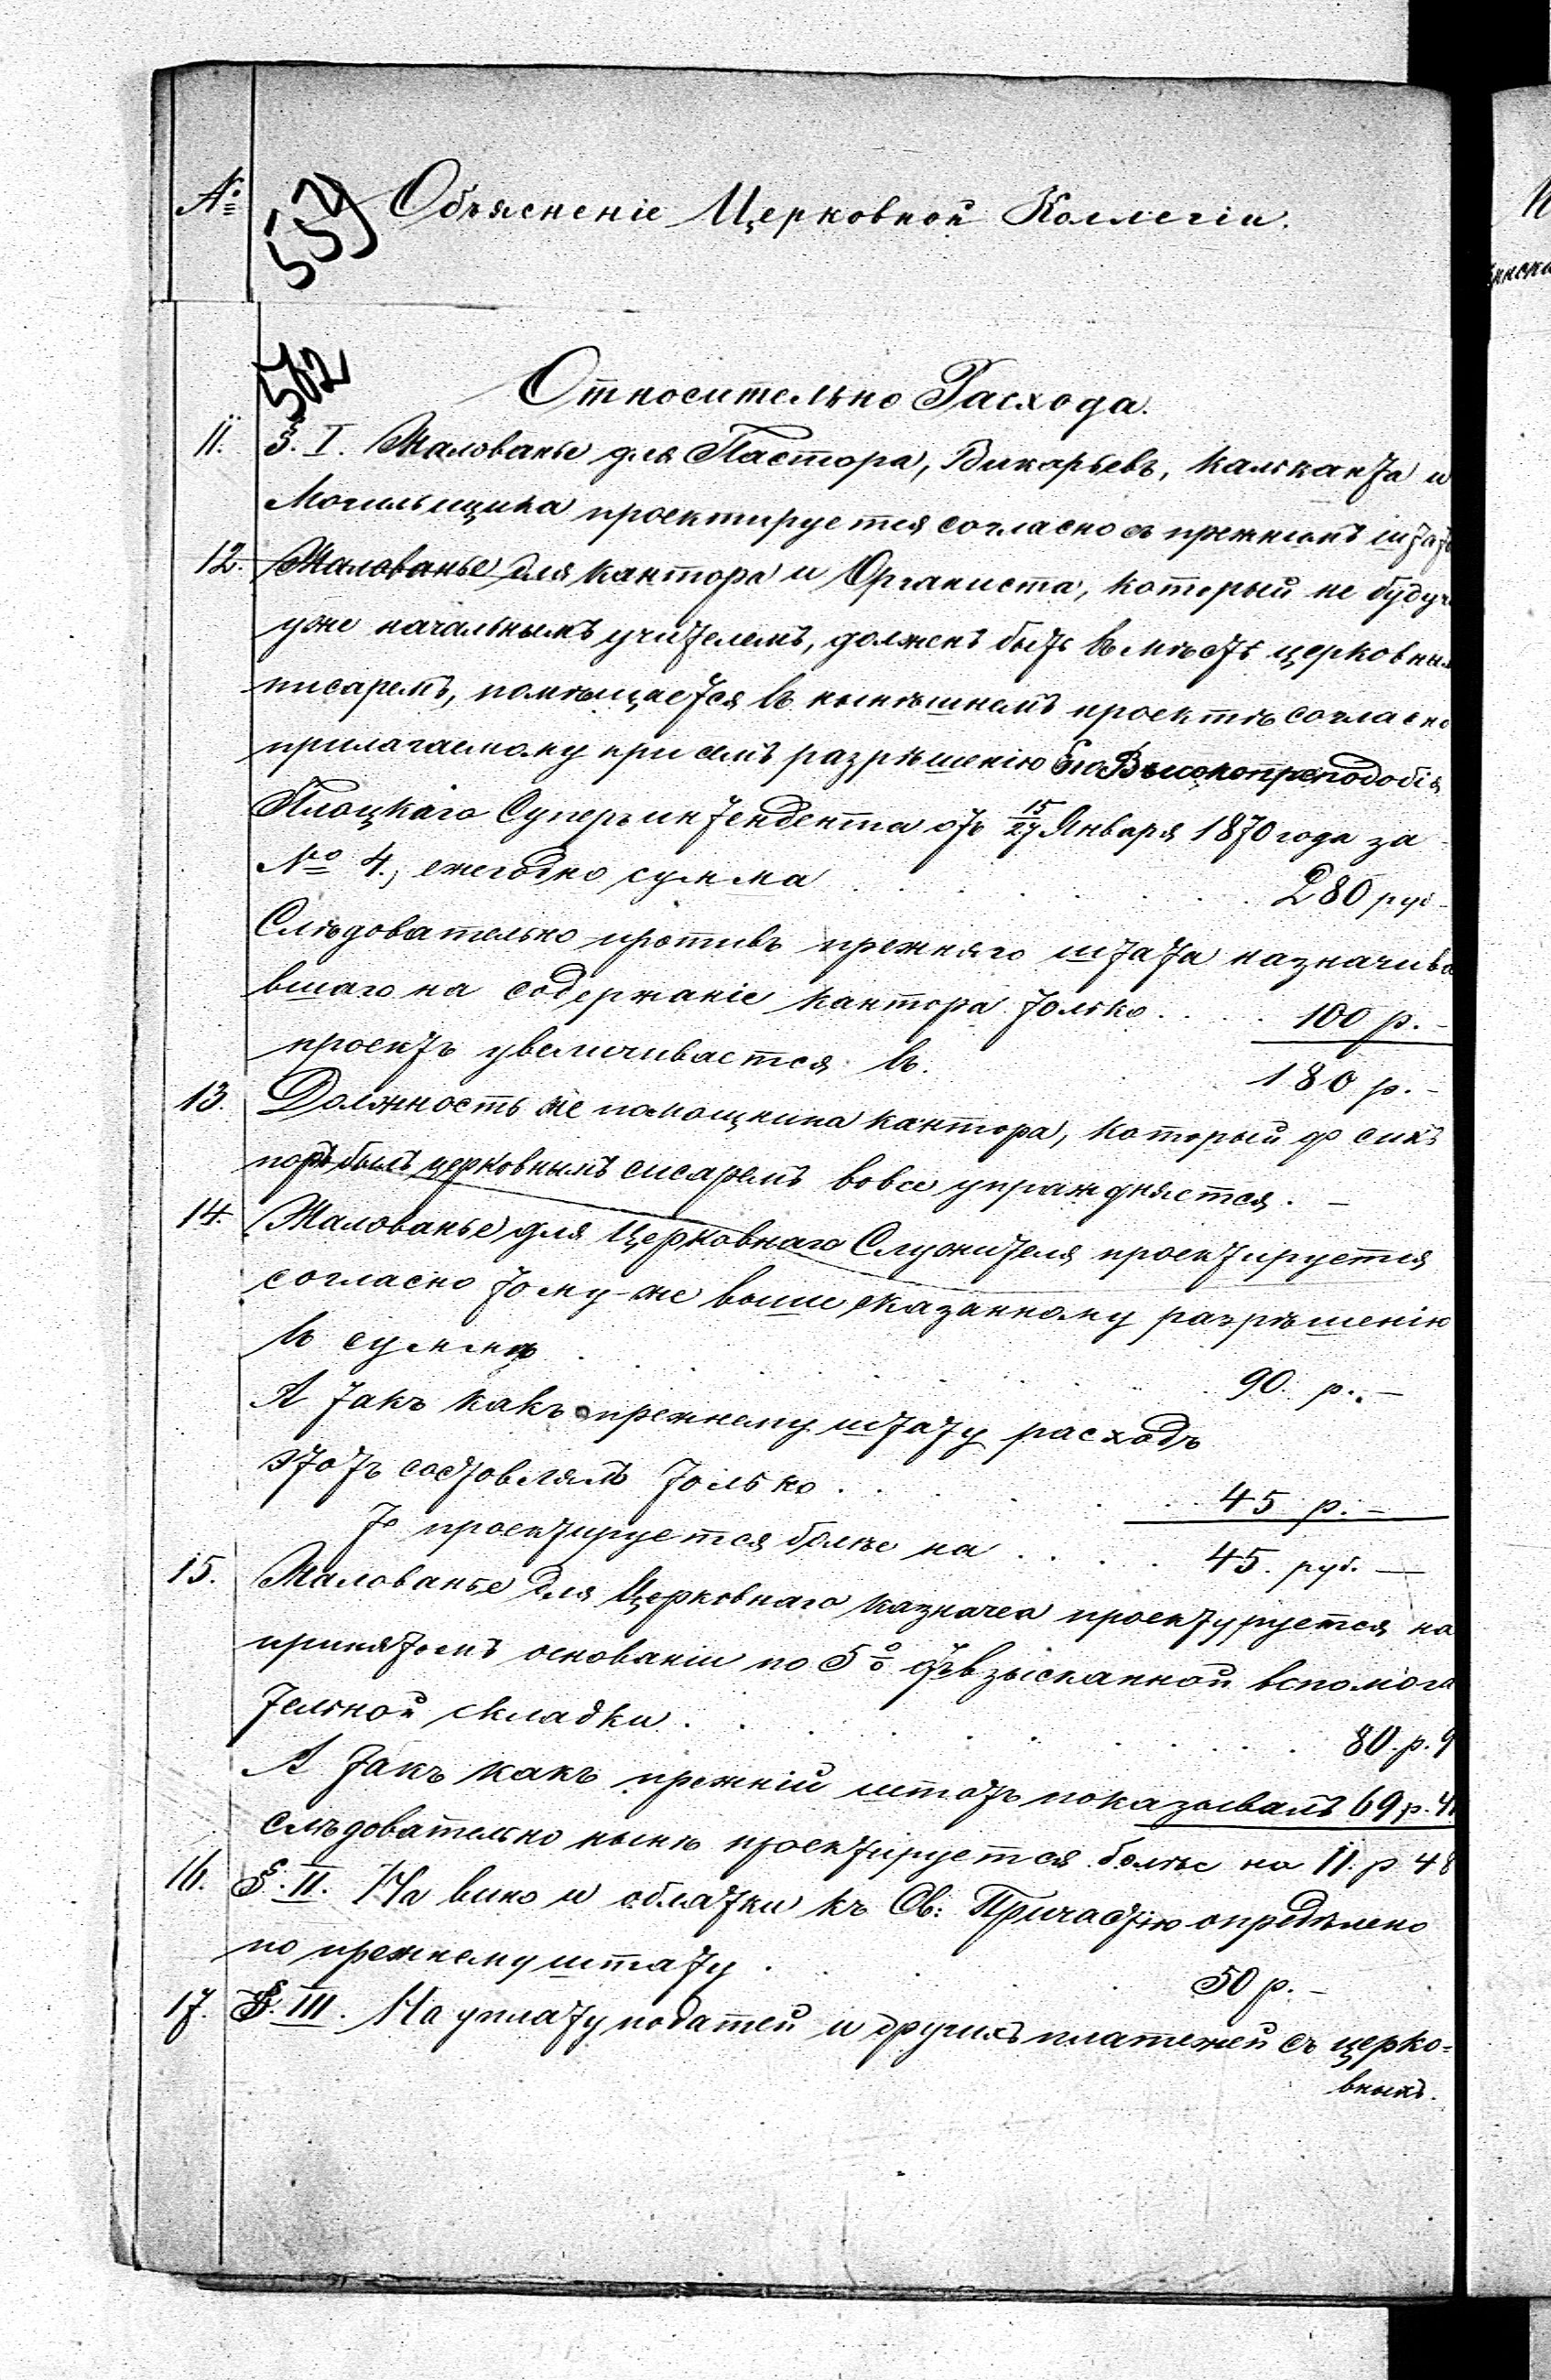 № 559 Объясненіе Церковной Коллегіи.
562
Относительно Расхода.
11. §. I. Жалованье для Пастора, Викарьевъ, Кальканта и
Могильщика проектируется согласно съ прежнимъ штат
12. Жалованье для Кантора и Органиста, который не будучи
уже начальнымъ учителемъ, долженъ быть вмѣстѣ церковны
писаремъ, помѣщается въ нынѣшнемъ проектѣ согласно
прилагаемому при семъ разрѣшенію Его Высокопреподобія
Плоцкаго Суперъинтендента отъ 15/27 Января 1870 года за
№ 4., ежегодно сумма . . . . . 280 руб -
Слѣдовательно противъ прежняго штата назначива
вшаго на содержаніе Кантора только . . . . 100 р. -
проектъ увеличивается въ . 180 р. -
13. Должность же помощника Кантора, который до сихъ
поръ былъ церковнымъ сисаремъ вовсе упраждняется. -
14. Жалованье для Церковнаго Служителя проектируется
согласно тому-же выше сказанному разрѣшенію
въ суммѣ . . . . . 90. р. -
А такъ какъ прежнему штату расходъ
этотъ состовлялъ только . . . . . 45 р. -
То проектируется болѣе на . . . . 45. руб. -
15. Жалованье для Церковнаго Казначеа проектуруется на
принятомъ основаніи по 5% отъ взысканной вспомога
тельной складки . . . . . 80. р. 9
А такъ какъ прежній штатъ показывалъ 69 р. 4
слѣдовательно нынѣ проектируется болѣе на 11. р 48
16. §. II. На вино и облатки къ Св: Причастію опредѣлено
по прежнему штату . . . 50 р. -
17. §. III. На уплату податей и другихъ платежей съ церко=
вныхъ.